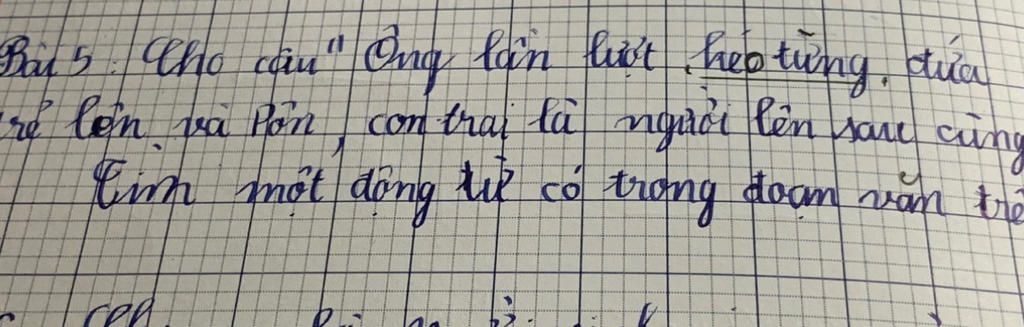 Bài 5: Cho câu "Ông lần lượt kéo từng, đứa
rẻ lên và Pôn, con trai là người lên sau cùng
Tìm một động từ có trong đoạn văn trê